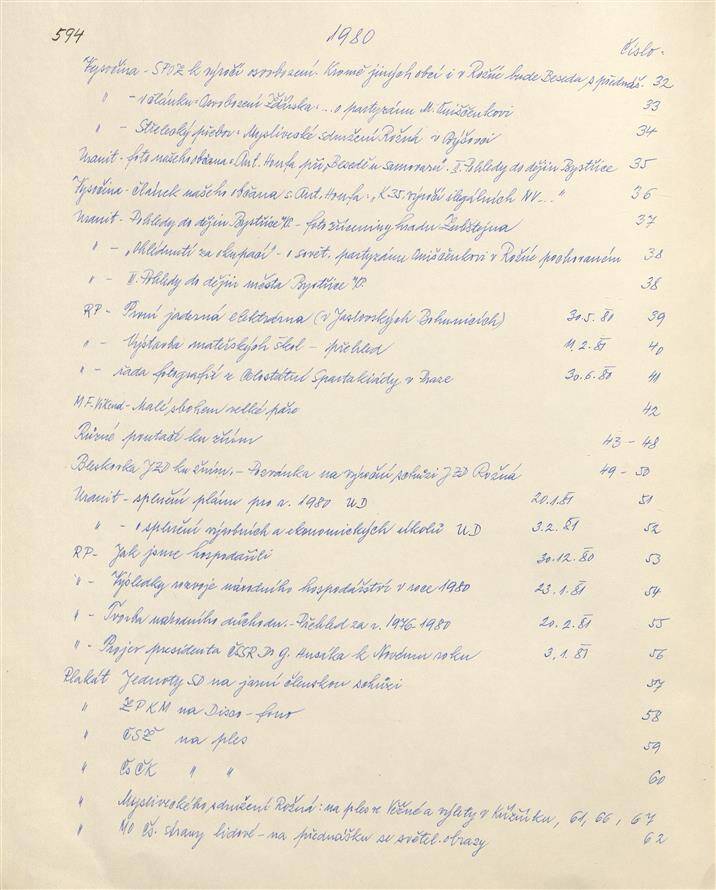 594
1980
Číslo -
Vysočina - SPOZ k výročí osvobození. Kromě jiných obcí i v Rožné bude Beseda s přednáš. 32
" - v článku "Osvobození Žďárska ... o partyzánu M. Oniščenkovi 33
" - Střelecký přebor - Myslivecké sdružení Rožná v 34
Uranit - foto našeho občana s. Ant. Honfa při "Besedě u samovaru". I. Pohledy do dějin Bystřice 35
Vysočina - článek našeho občana s. Ant. Honfa: "K 35. výročí ilegálních NV ..." 36
Uranit - Pohledy do dějin Bystřice n/P. - foto zříceniny hradu Zubštejna 37
" - "Ohlédnutí za okupací" - o sovět. partyzánu Oniščenkovi v Rožné pochovaném 38
" - II. Pohledy do dějin města Bystřice n/P. 38
RP - První jaderná elektrárna (v Jaslovských Bohunicích) 30.5. 80 39
" - Výstavba mateřských škol - přehled 11.2. 81 40
" - řada fotografií z Celostátní Spartakiády v Praze 30.6. 80 41
MF. Víkend - Malé sbohem velké páře 42
Různé poutače ke žním 43 - 48
Bleskovka JZD ke žním. - Pozvánka na výroční schůzi JZD Rožná 49 - 50
Uranit - splnění plánu pro r. 1980 UD 20.1.81 51
" - o splnění výrobních a ekonomických úkolů UD 3.2. 81 52
RP - Jak jsme hospodařili 30.12. 80 53
" - Výsledky rozvoje národního hospodářství v roce 1980 23.1. 81 54
" - Tvorba národního důchodu. - Přehled za r. 1976-1980 20.2.81 55
" - Projev presidenta ČSSR Dr. G. Husáka k Novému roku 3.1. 81 56
Plakát Jednoty SD na jarní členskou schůzi 57
" ZPKM na Disco - fono 58
" ČSŽ na ples 59
" ČsČK " " 60
" Mysliveckého sdružení Rožná: na ples ve Věžné a výlety v 61, 66, 67
" MO Čs. strany lidové - na přednášku se světel. obrazy 62